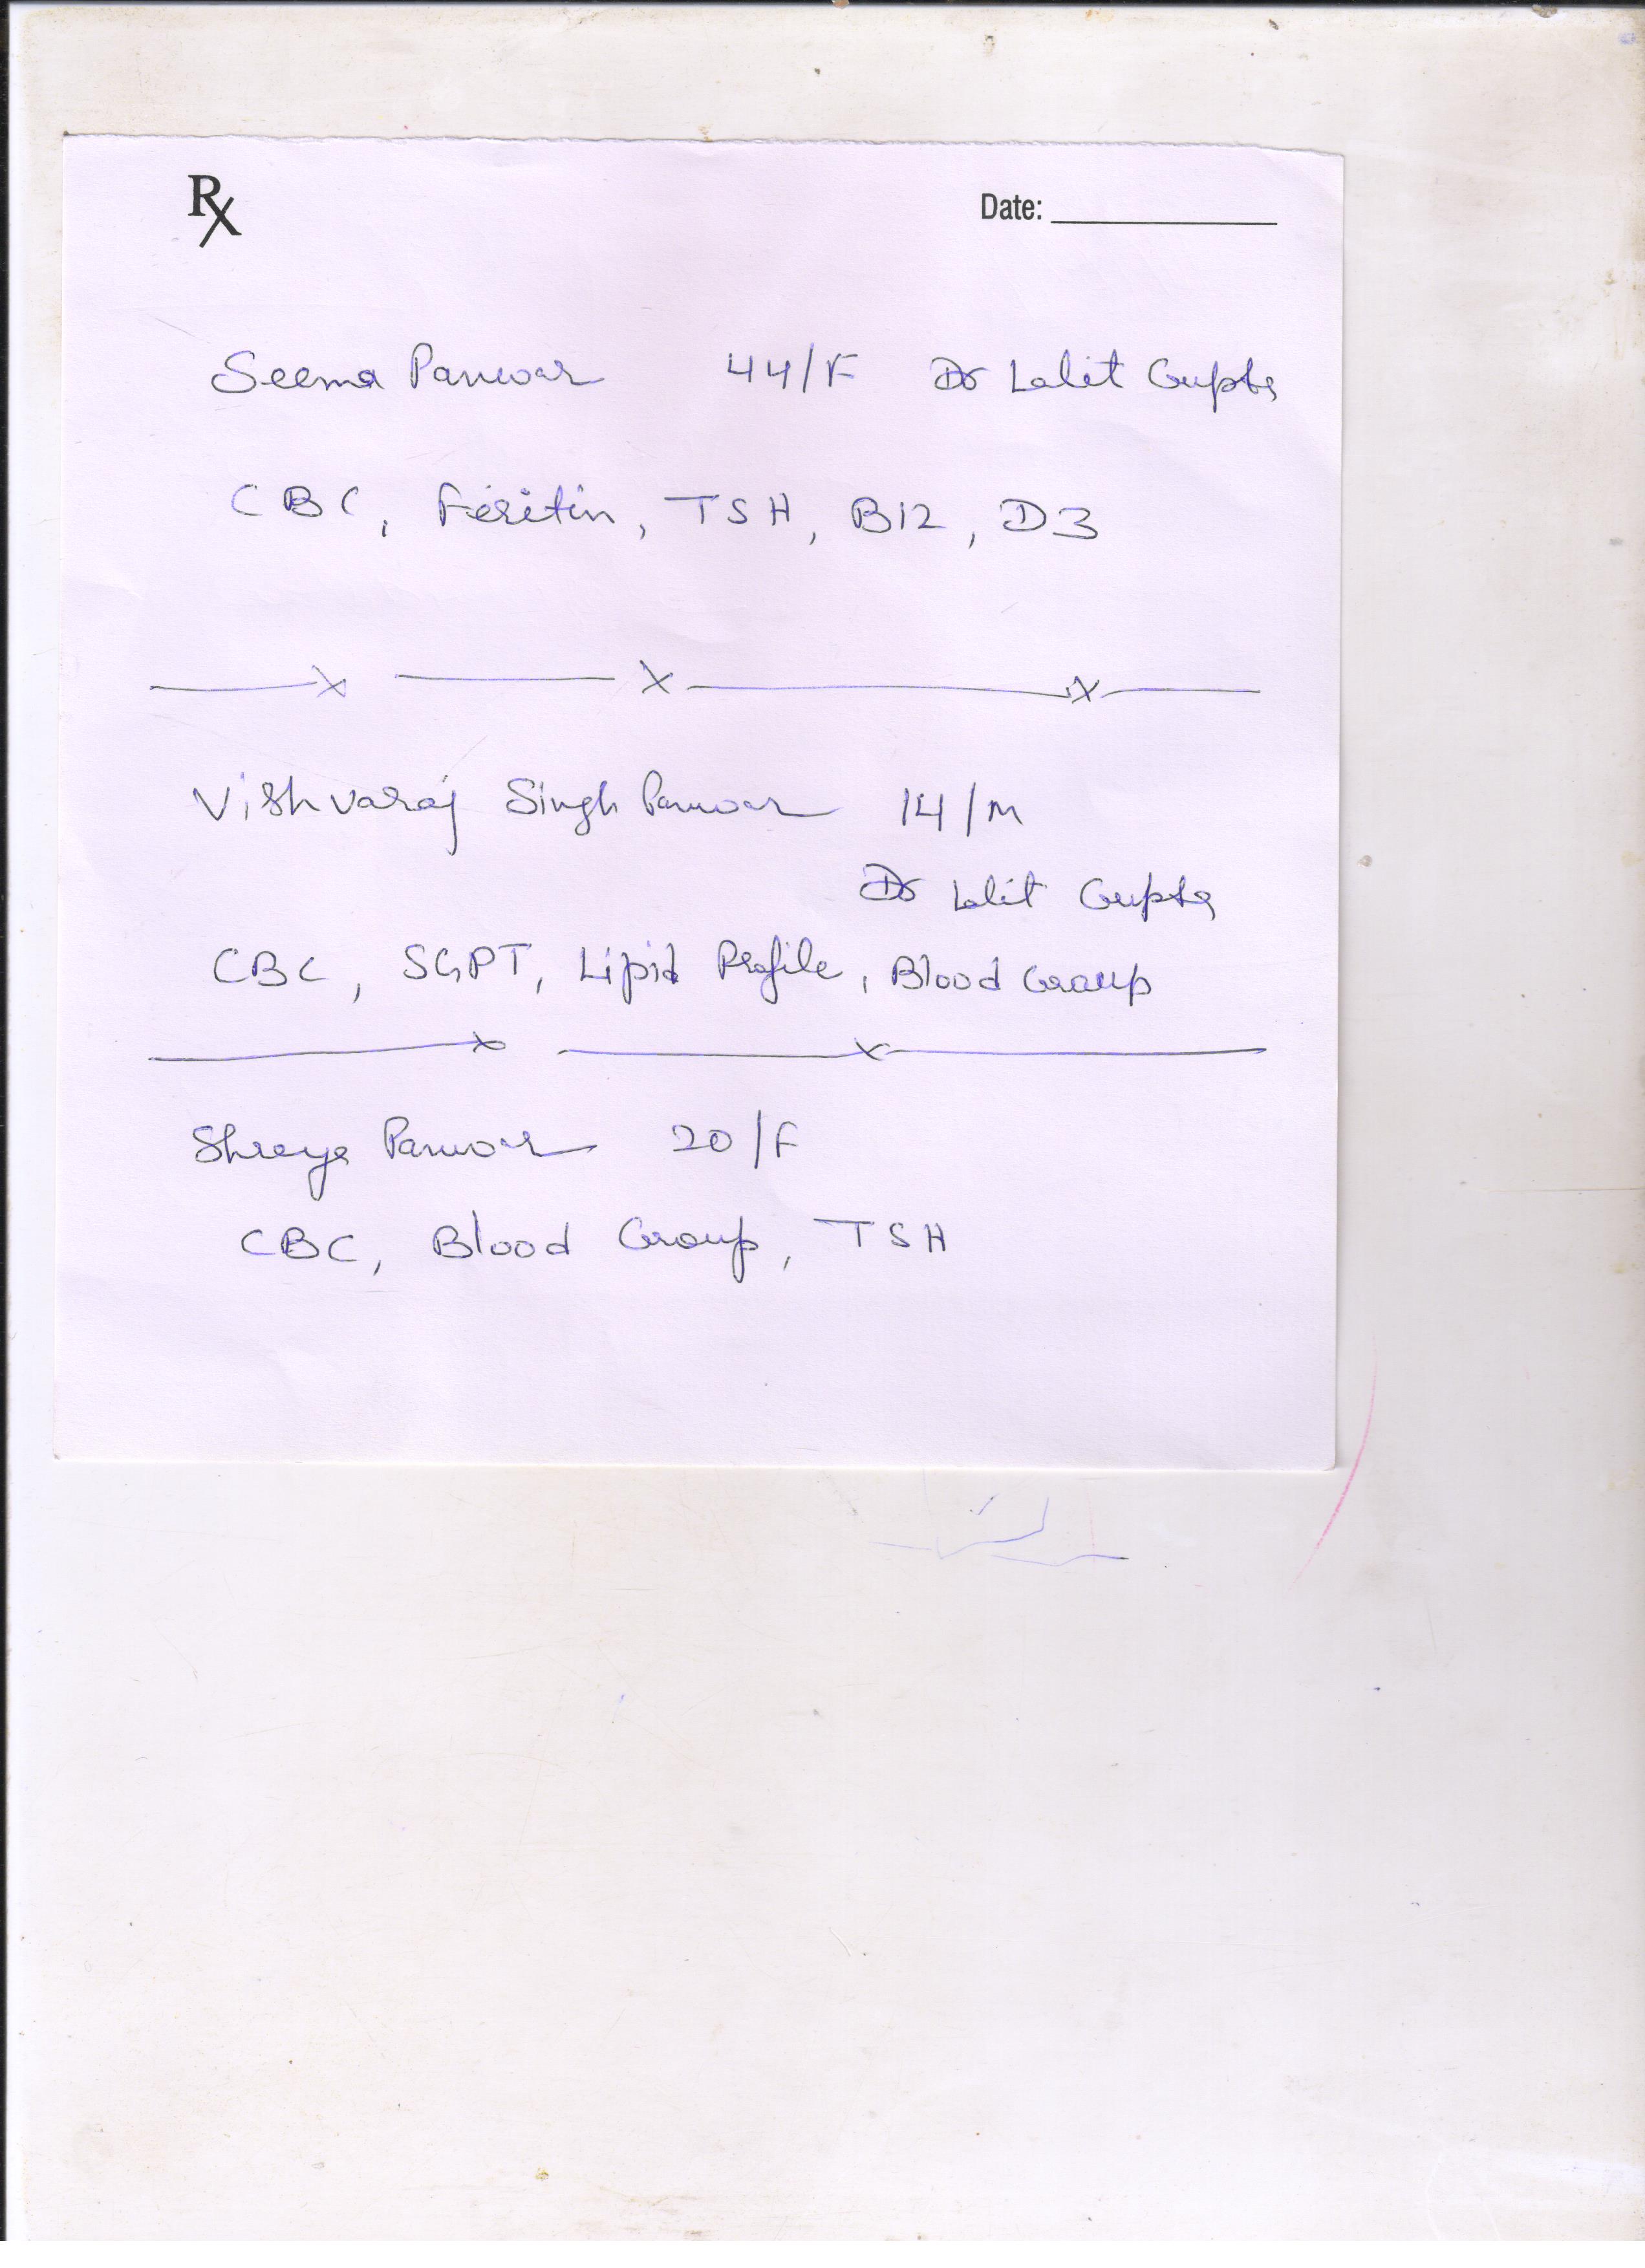 Rx
Date:
Seema Panwar 44/F Dr Lalit Gupta
CBC, Feritin, TSH, B12, D3
x x x
Vishvaraj Singh Panwar 14/M
Dr Lalit Gupta
CBC, SGPT, Lipid Profile, Blood Group
x x
Shreya Panwar 20/F
CBC, Blood Group, TSH